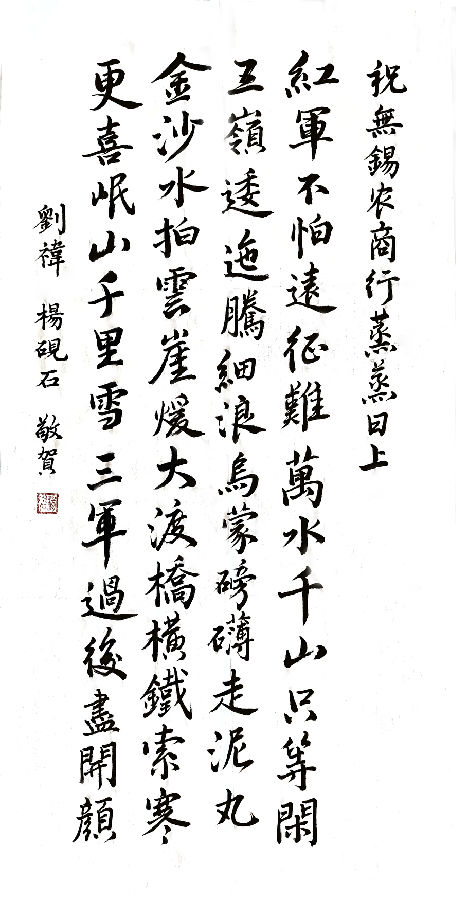 祝無錫农商行蒸蒸日上
紅軍不怕遠征難萬水千山只等閑
五嶺逶迤騰細浪烏蒙磅礴走泥丸
金沙水拍雲崖煖大渡橋橫鐵索寒
更喜岷山千里雪三軍過後盡開顏
劉禕 楊硯石 敬賀